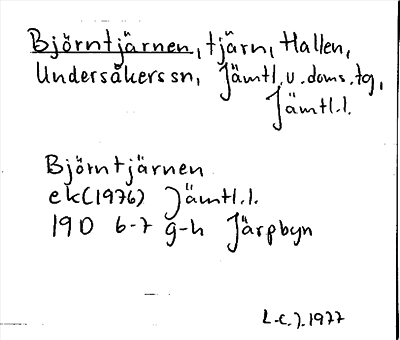 Björntjärnen, tjärn, Hallen,
Undersåkers sn, Jämtl. v. doms. tg,
Jämtl. l.
Björntjärnen
ek (1976) Jämtl. l.
19D 6-7 g-h Järpbyn
L.-E. J. 1977